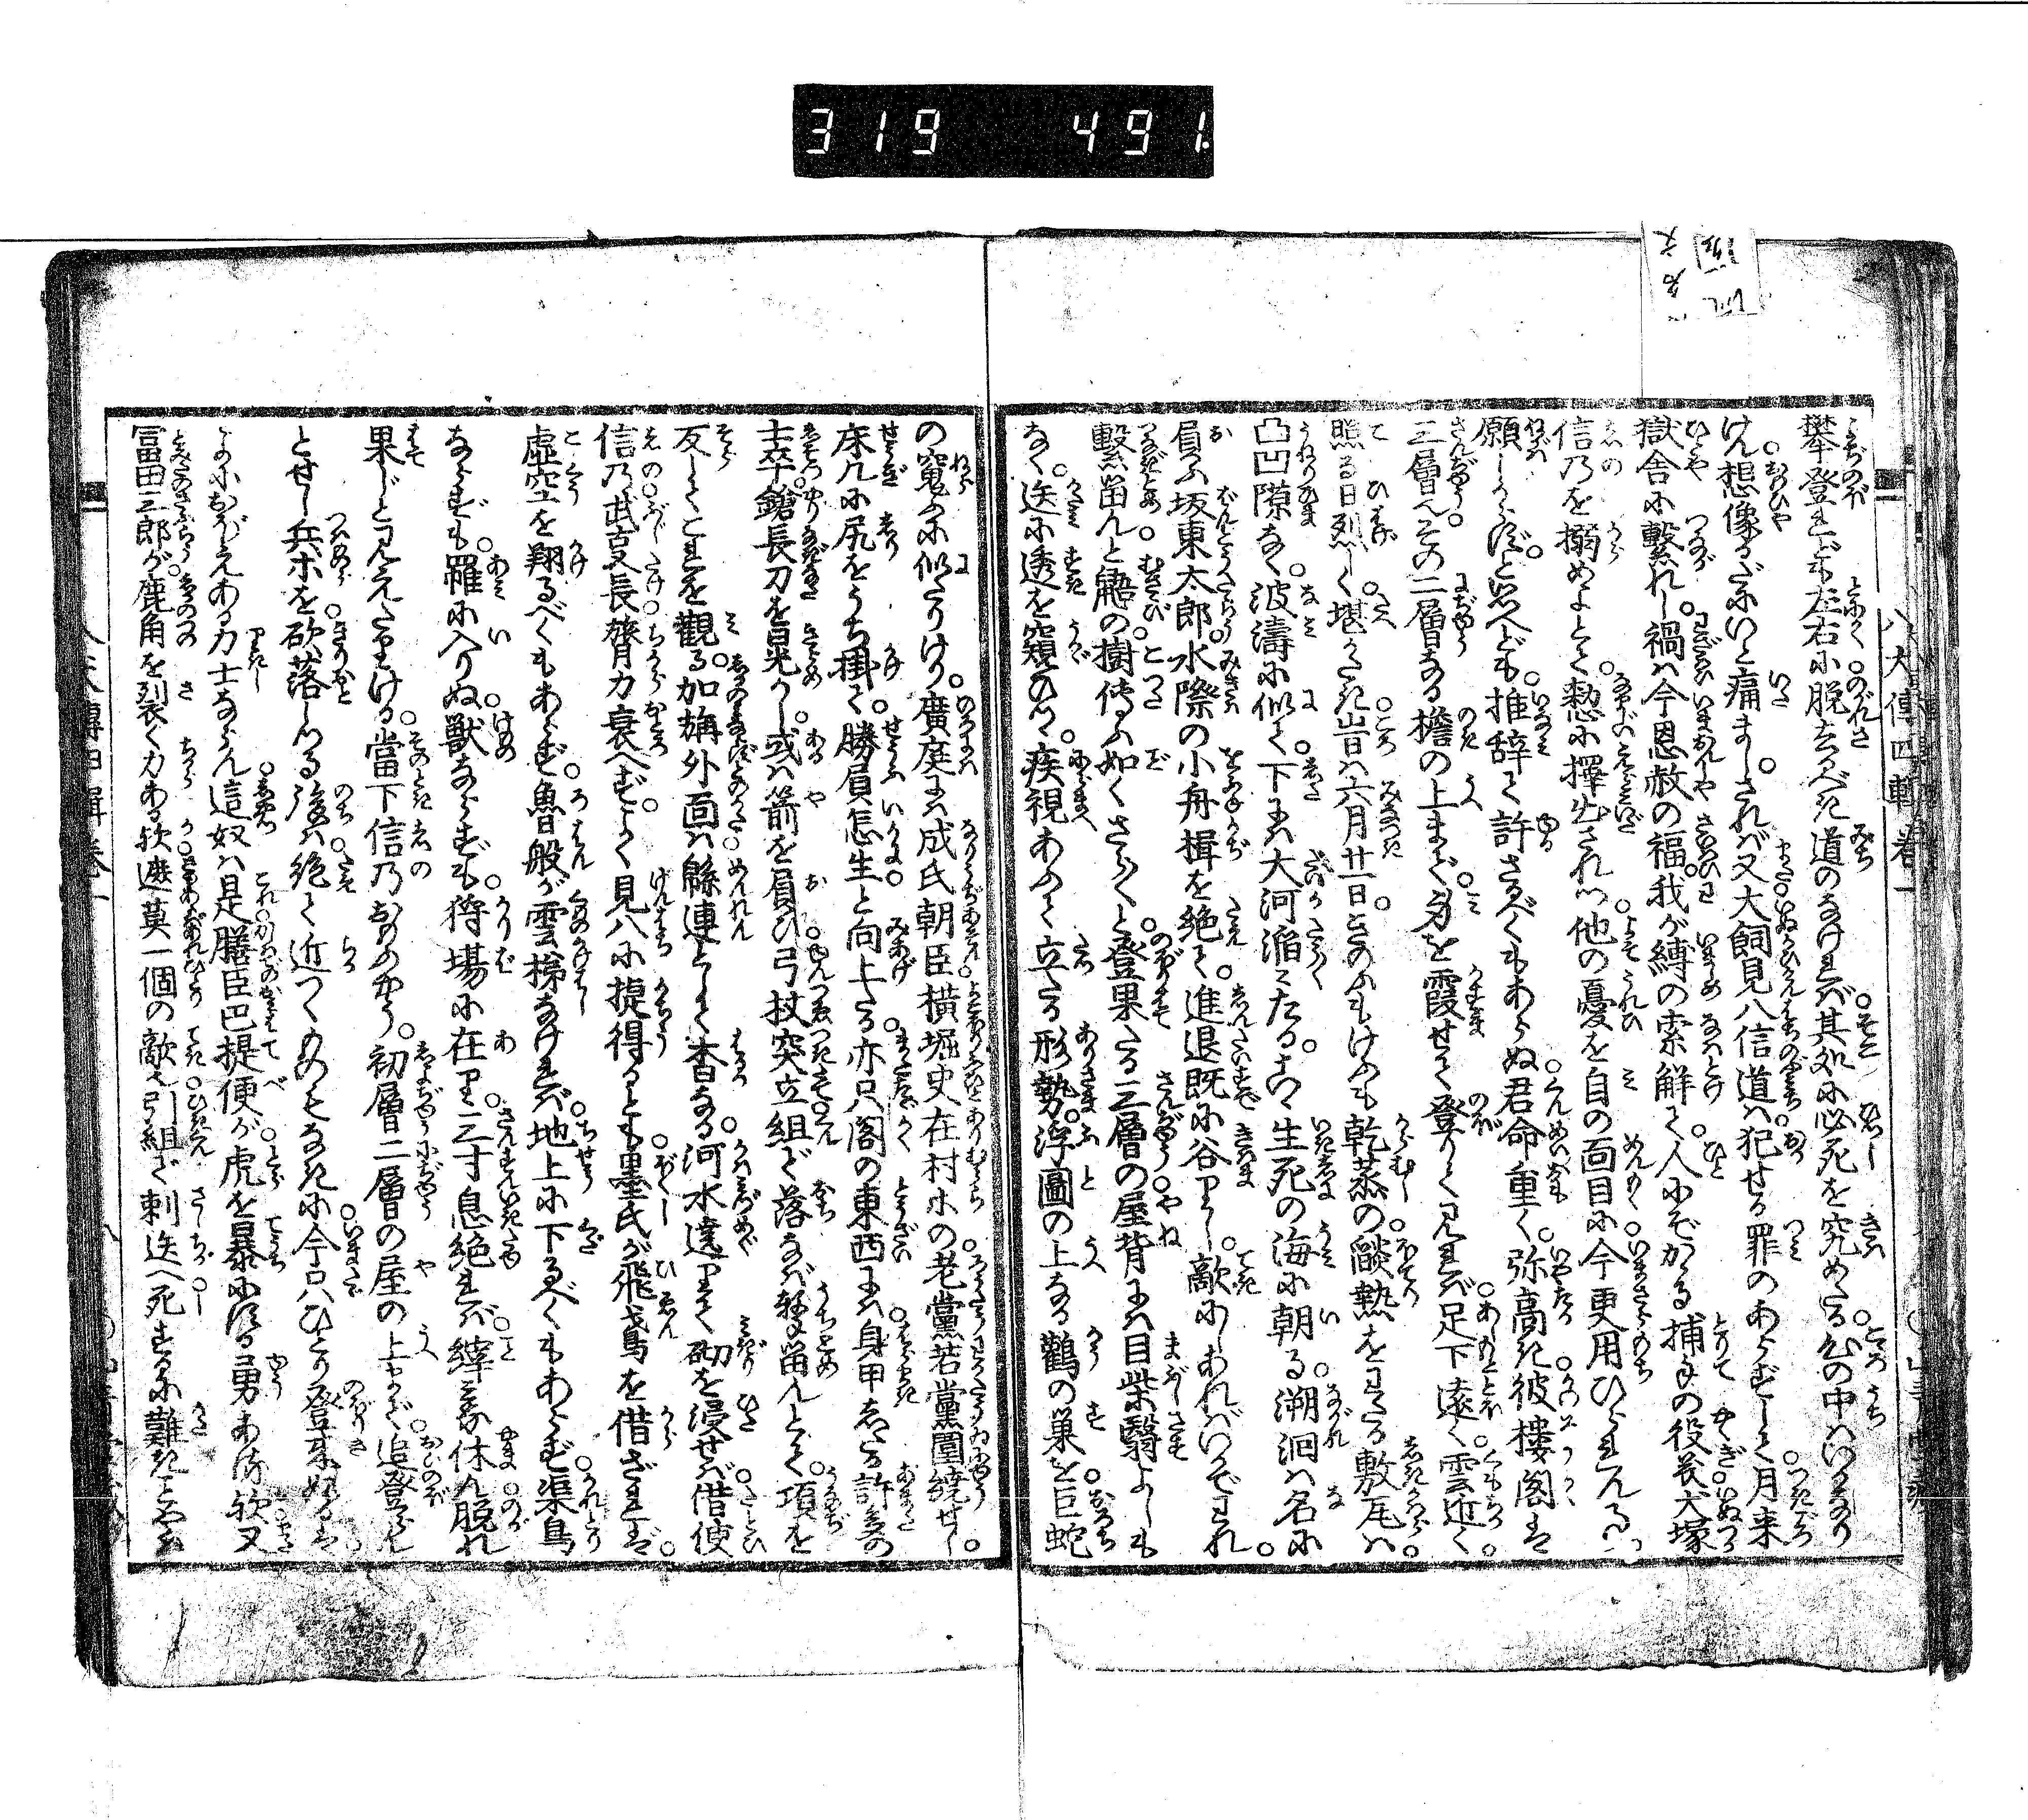 319 491.
八犬傳四輯卷一
攀登れども左右に脱去べき道のなければ其処に必死を究めたる心の中はいかなり
けん想像るだにいと痛まし。されば又犬飼見八信道は犯せる罪のあらずして月来
獄舎に繋れし禍は今恩赦の福。我が縛の索解て人にぞかかる捕手の役義犬塚
信乃を搦めよとて。愁に擇出されつ。他の憂を自の面目に今更用ひられんこと
願しからずと思へども推辞て許さるべくもあらぬ君命重く。弥高き彼樓閣は
三層也。その二層なる檐の上まで身を霞せて登りて見れば足下遠く雲近く
照る日烈しく堪がたき。頃日は六月廿一日。きのふもけふも乾蒸の燄熱をわたる敷瓦は
凸凹隙なく波濤に似て。下には大河滔々たる。こゝ生死の海に朝る。溯洄は名に
負ふ坂東太郎。水際の小舟楫を絶て。進退既に谷りし。敵にしあればいかでわれ
繋留んと鼯の樹傳ふ如くさら〳〵と登果たる三層の屋背には目柴翳よしも
なく。迭に透を窺ひつゝ疾視あふて立たる形勢。浮圖の上なる鸛の巣を巨蛇
の窺ふに似たりけり。廣庭には成氏朝臣横堀史在村等の老黨若黨圍繞せし。
床几に尻をうち掛て勝負怎生と向上たる。亦只閣の東西には身甲したる許多の
士卒。鎗長刀を晃かし或は箭を負ひ弓杖突立組で落なば撃留んとて。項を
反らしてこれを觀る。加旃外面は緜連として杳なる河水遶りて砌を浸せば借使
信乃武藝長膂力衰へずよく見八に捷得るとも墨氏が飛鳶を借ざれば。
虚空を翔るべくもあらず。魯般が雲梯なければ地上に下るべくもあらず。渠鳥
ならずも羅に入りぬ。獣ならずも狩場に在り。三寸息絶れば縡みな休ん脱れ
果じと見えたりける。當下信乃おもふやう。初層二層の屋の上まで追登らん
とせし兵等を砍落しつる後は絶て近づくものもなきに今只ひとり登來ぬるは
よにおぼえある力士ならん。這奴は是膳臣巴提便が虎を暴にする勇ある歟。又
富田三郎が鹿角を裂く力ある歟。遮莫一個の敵也。引組で刺迭へ死するに難きことやは